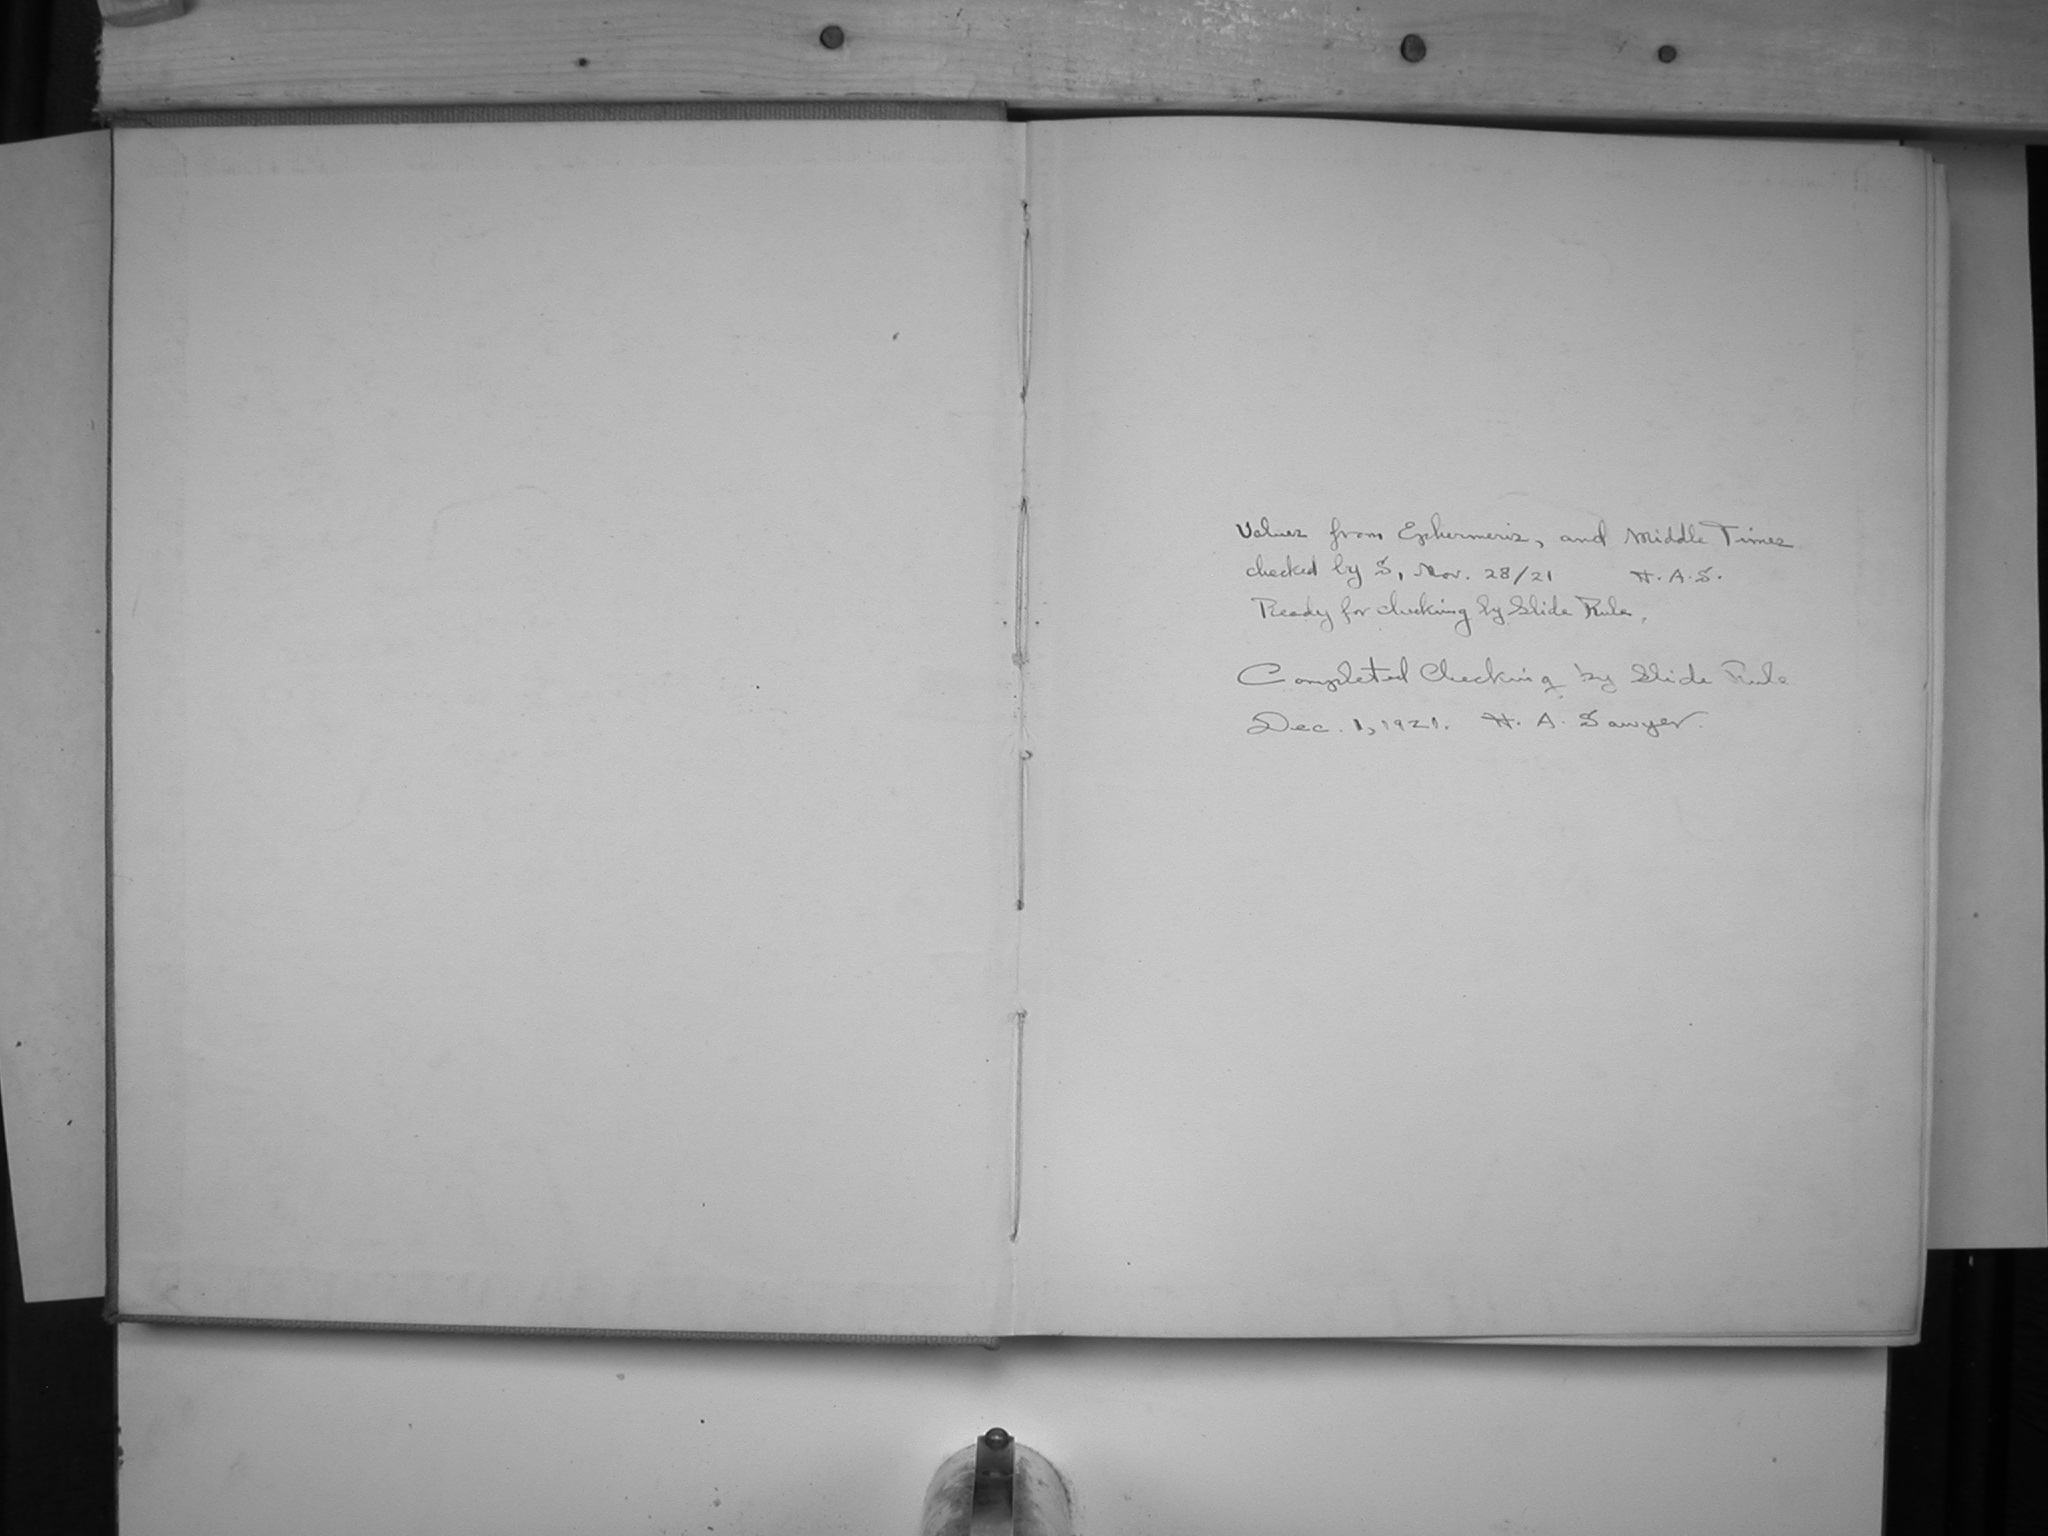 Values from Ephermeris, and Middle Times
checked by S, Nov. 28/21 H. A. S.
Ready for checking by Slide Rule.
Completed Checking by Slide Rule
Dec. 1, 1921. H. A. Sawyer.